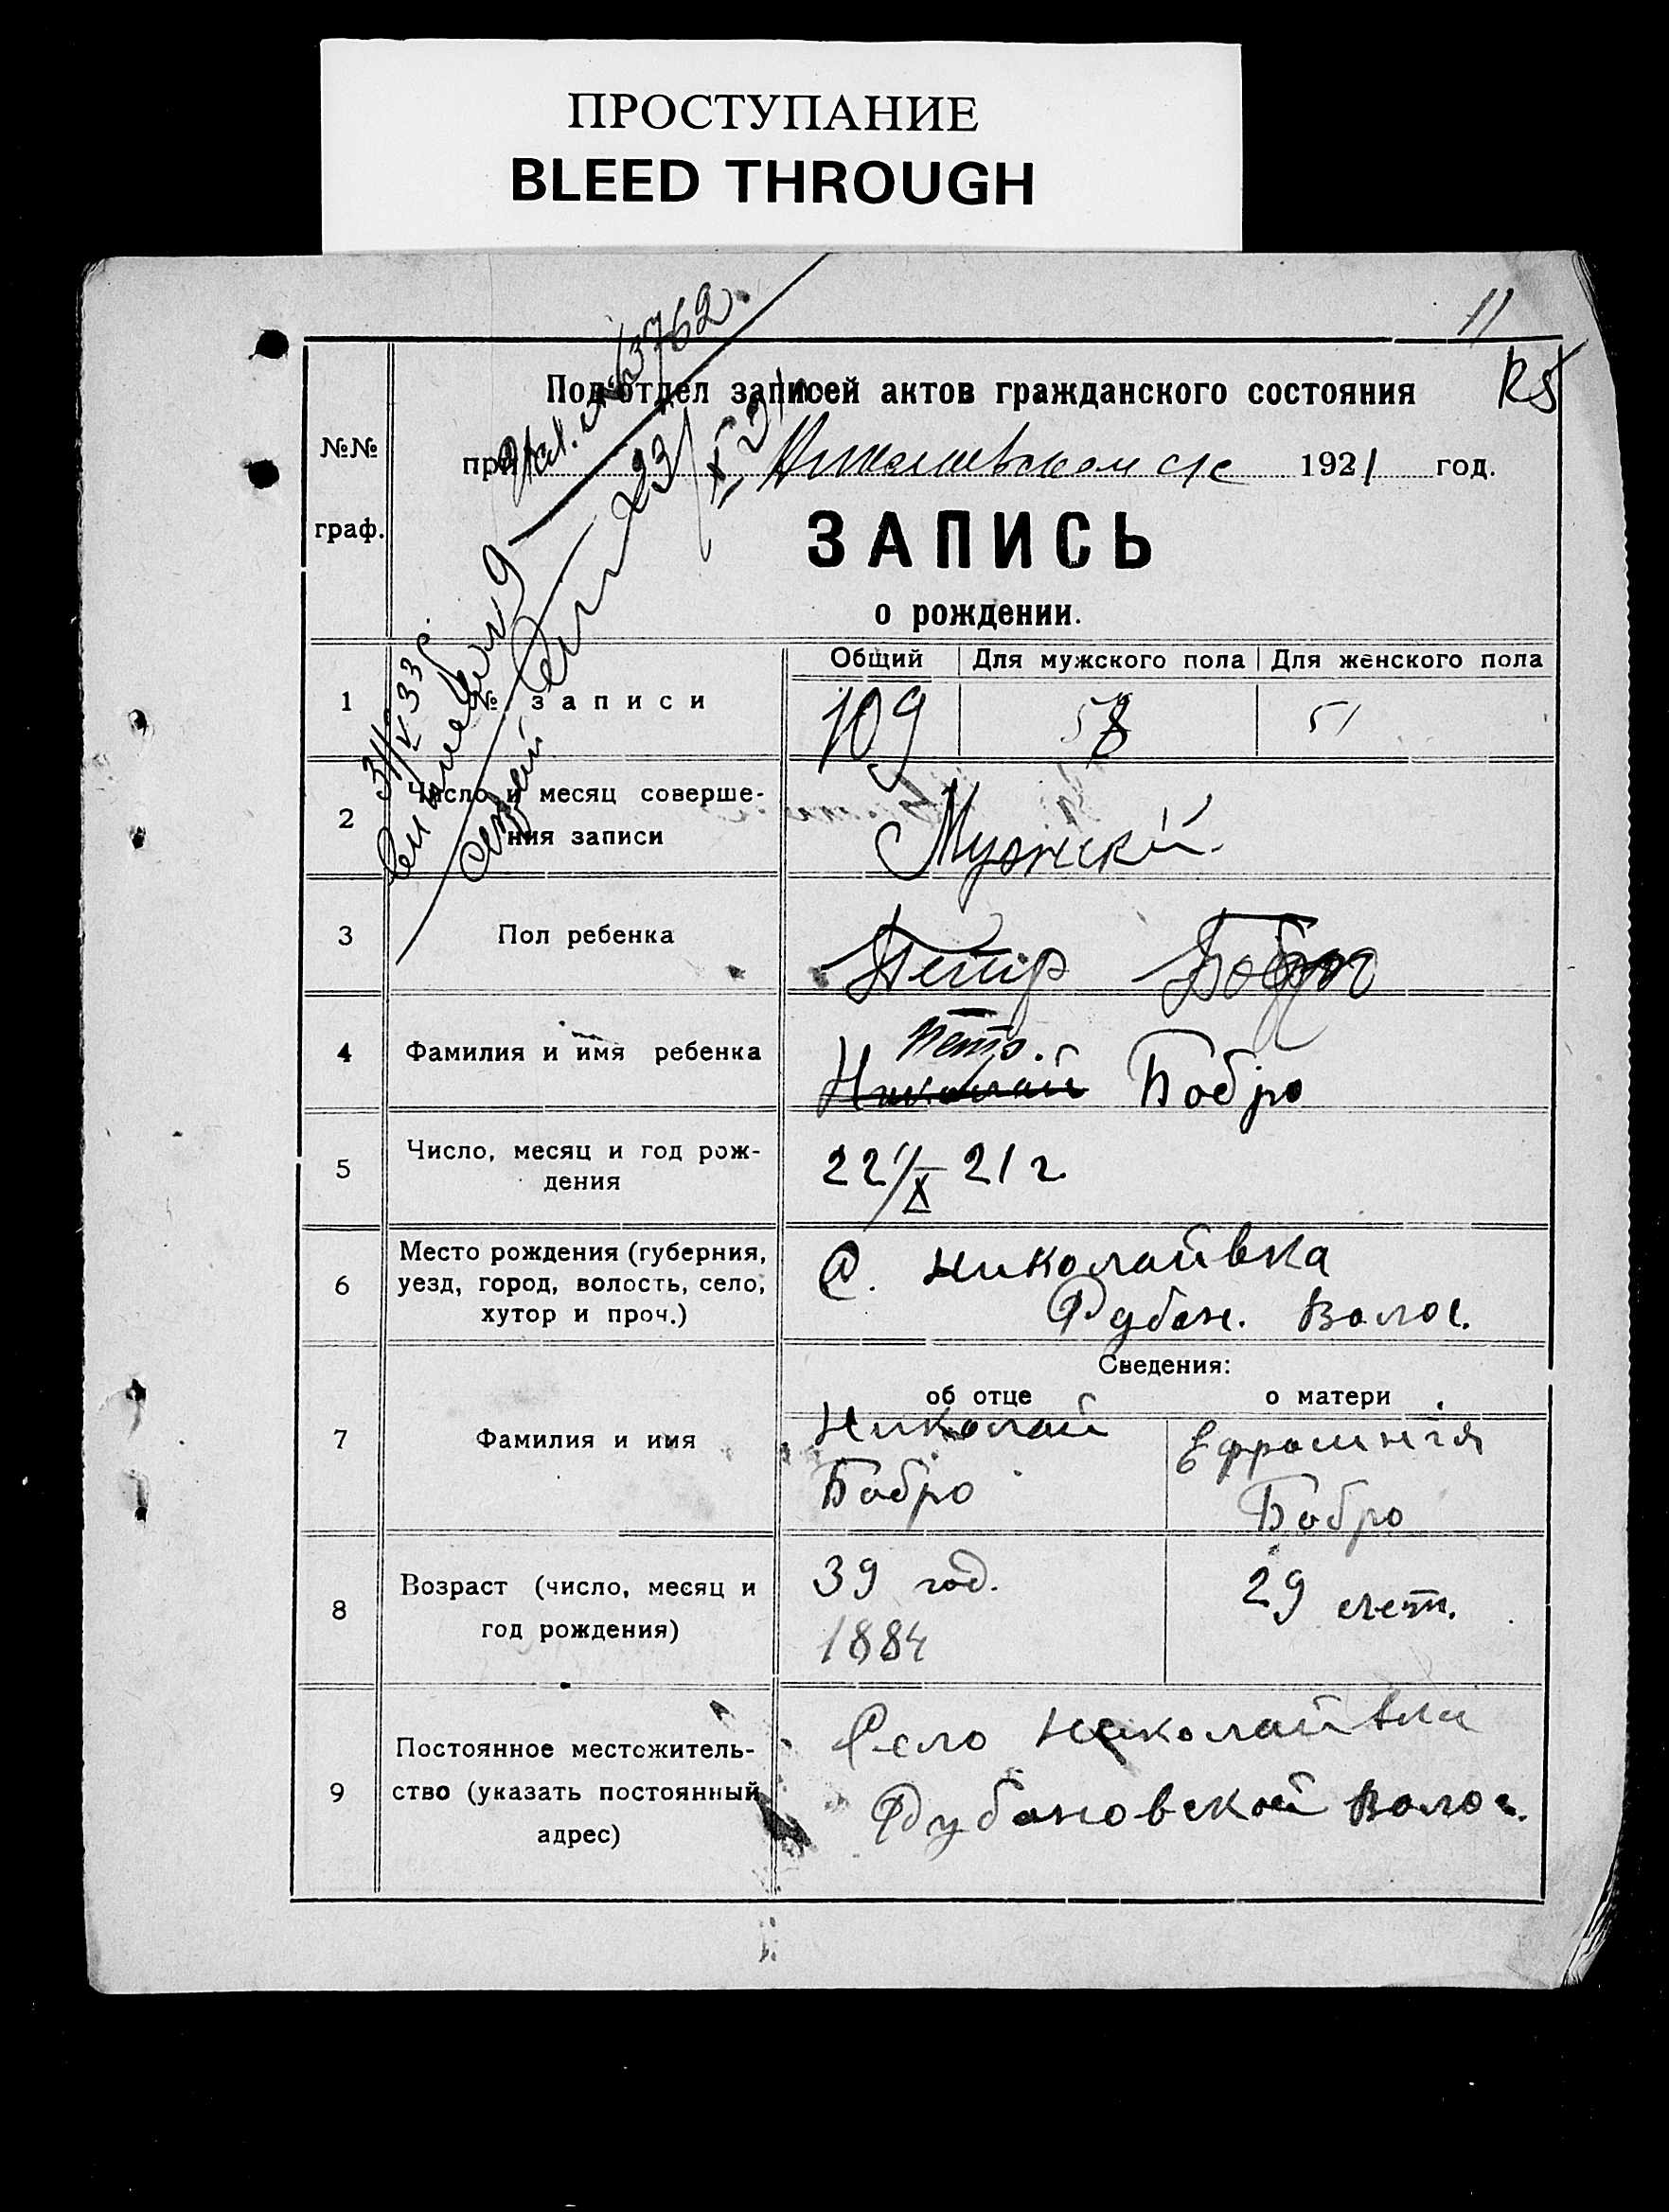 ПРОСТУПАНИЕ
BLEED THROUGH
11
Подотдел записей актов гражданского состояния
при 1921 год.
№№
граф.
ЗАПИСЬ
о рождении.
Общий Для мужского пола Для женского пола
1 № записи 109 58 51
2 Число и месяц соверше-
ния записи
Мужской
3 Пол ребенка
Петр Бобро
Петр.
4 Фамилия и имя ребенка Николай Бобро
5 Число, месяц и год рож-
дения
22/X 21 г.
6 Место рождения (губерния,
уезд, город, волость, село,
хутор и проч.)
С. Николайвка
Рубан. Волос.
Сведения:
об отце о матери
7 Фамилия и имя
Николай Ефросиния
Бобро Бобро
8 Возраст (число, месяц и
год рождения)
39 год. 29 лет.
1884
9 Постоянное местожитель-
ство (указать постоянный
адрес)
Село Николайвки
Рубановской Волос.
31/V 33